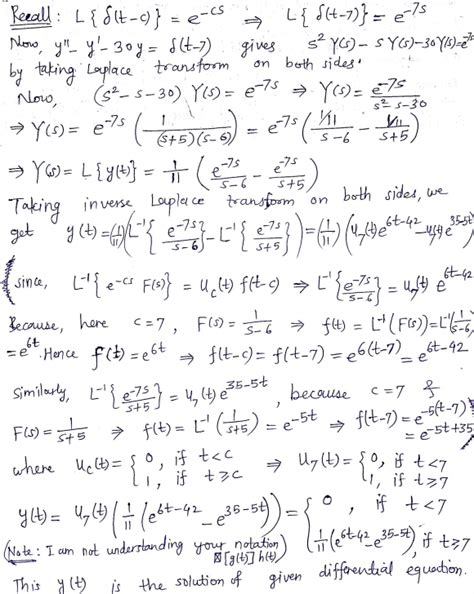 Recall: L{δ(t-c)} = e^{-cs} ⇒ L{δ(t-7)} = e^{-7s}
Now, y'' - y' - 30y = δ(t-7) gives s² Y(s) - s Y(s) - 30Y(s) = e^{-7s}
by taking Laplace transform on both sides.
Now, (s² - s - 30) Y(s) = e^{-7s} ⇒ Y(s) = e^{-7s} / (s² s-30)
⇒ Y(s) = e^{-7s} (1/((s+5)(s-6))) = e^{-7s} ((1/11)/(s-6) - (1/11)/(s+5))
⇒ Y(s) = L{y(t)} = 1/11 (e^{-7s}/(s-6) - e^{-7s}/(s+5))
Taking inverse Laplace transform on both sides, we
get y(t) = (1/11)(L^{-1}{e^{-7s}/(s-6)} - L^{-1}{e^{-7s}/(s+5)}) = (1/11)(u_7(t) e^{6t-42} - u_7(t) e^{35-5t})
(since, L^{-1}{e^{-cs} F(s)} = u_c(t) f(t-c) ⇒ L^{-1}{e^{-7s}/(s-6)} = u_7(t) e^{6t-42}
Because, here c=7, F(s) = 1/(s-6) ⇒ f(t) = L^{-1}(F(s)) = L^{-1}(1/(s-6))
= e^{6t}. Hence f(t) = e^{6t} ⇒ f(t-c) = f(t-7) = e^{6(t-7)} = e^{6t-42}
Similarly, L^{-1}{e^{-7s}/(s+5)} = u_7(t) e^{35-5t}, because c=7 &
F(s) = 1/(s+5) ⇒ f(t) = L^{-1}(1/(s+5)) = e^{-5t} ⇒ f(t-7) = e^{-5(t-7)} = e^{-5t+35}
where u_c(t) = { 0, if t<c ; 1, if t≥c ⇒ u_7(t) = { 0, if t<7 ; 1, if t≥7
y(t) = u_7(t) (1/11 (e^{6t-42} - e^{35-5t})) = { 0, if t<7 ; 1/11 (e^{6t-42} - e^{35-5t}), if t≥7
(Note: I am not understanding your notation □[g(t)] h(t))
This y(t) is the solution of given differential equation.